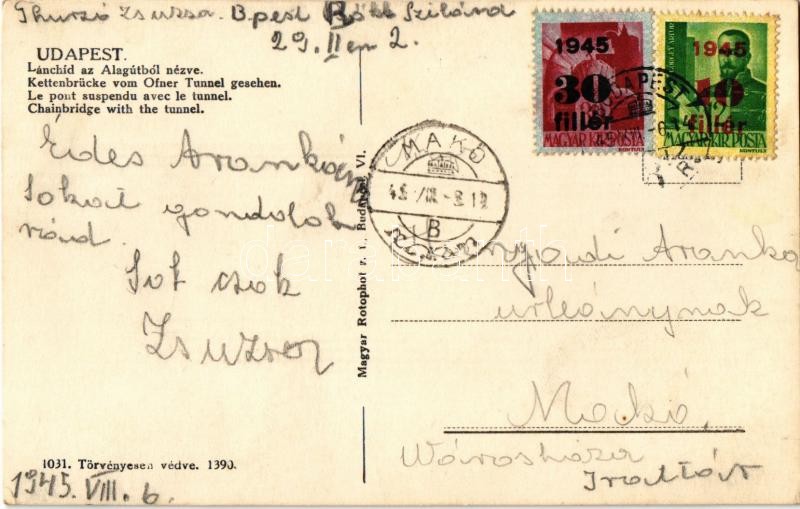 Thurzó Zsuzsa. B.pest Rökk Szilárd
29. II em 2.
1945
30
fillér
MAGYAR KIR. POSTA
1945
10
fillér
MAGYAR KIR. POSTA
BUDAPEST
UDAPEST.
Lánchíd az Alagútból nézve.
Kettenbrücke vom Ofner Tunnel gesehen.
Le pont suspendu avec le tunnel.
Chainbridge with the tunnel.
MAKÓ
B
Édes Arankám
Sokat gondolok
rád.
Sok csók
Zsuzsa
Magyar Rotophot r. t., Budapest VI.
Aranka
úrleánynak
Makó,
Városháza
Irattár
1031. Törvényesen védve. 1390.
1945. VIII. 6.